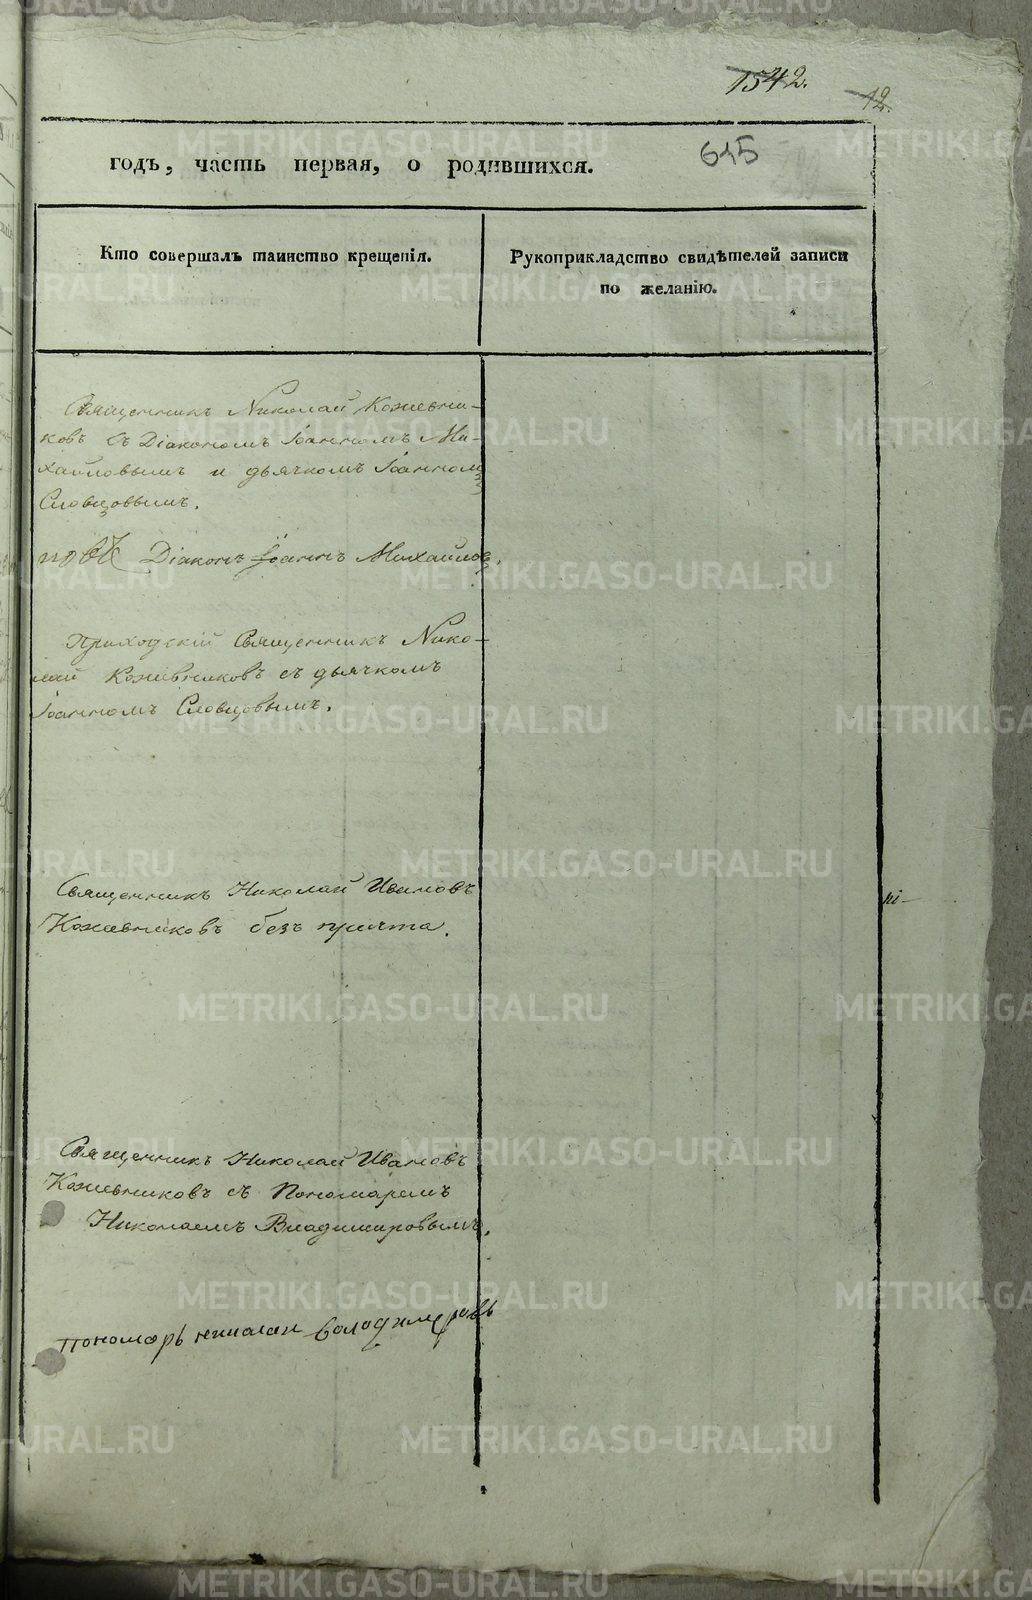 1542.
12.
615
годъ, часть первая, о родившихся.
Кто совершалъ таинство крещенія.
Рукоприкладство свидѣтелей записи
по желанію.
Священникъ Николай Кожевни-
ковъ съ Діакономъ Іоанномъ Ми-
хайловымъ и дьячкомъ Іоанномъ
Словцовымъ.
Діаконъ Іоаннъ Михайловъ.
Приходскій Священникъ Нико-
лай Кожевниковъ съ дьячкомъ
Іоанномъ Словцовымъ.
Священникъ Николай Ивановъ
Кожевниковъ безъ причта.
Священникъ Николай Ивановъ
Кожевниковъ съ Пономаремъ
Николаемъ Владимировымъ.
пономарь николаи володимеровъ
METRIKI.GASO-URAL.RU